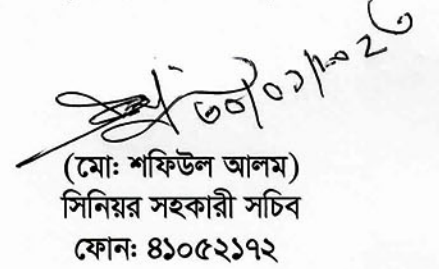 ৩০/০১/২০২৩
(মো: শফিউল আলম)
সিনিয়র সহকারী সচিব
ফোন: ৪১০৫২১৭২